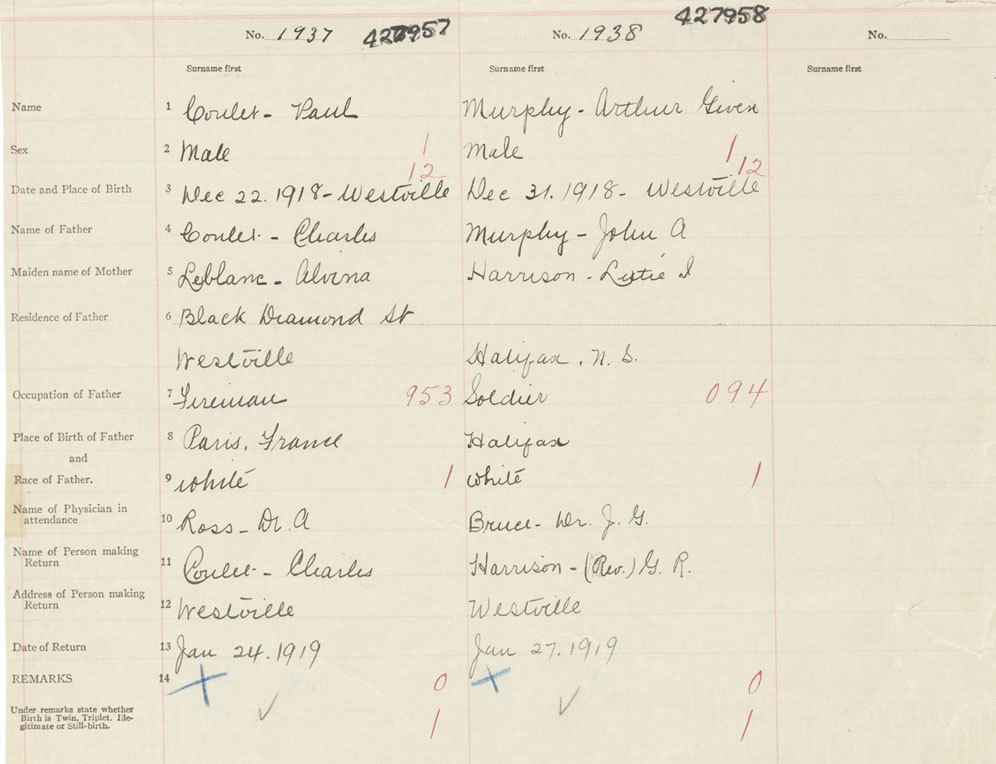 No. 1937 427957 No. 1938 427958 No.
Surname first Surname first Surname first
Name 1 Coulet - Paul Murphy - Arthur Given
Sex 2 Male 1 Male 1
12 12
Date and Place of Birth 3 Dec 22. 1918 - Westville Dec 31. 1918 - Westville
Name of Father 4 Coulet - Charles Murphy - John A
Maiden name of Mother 5 Leblanc - Alvina Harrison - Lutie I
Residence of Father 6 Black Diamond St
Westville Halifax, N. S.
Occupation of Father 7 Fireman 953 Soldier 094
Place of Birth of Father 8 Paris, France Halifax
and
Race of Father. 9 white 1 white 1
Name of Physician in
attendance 10 Ross - Dr. A Bruce - Dr. J. G.
Name of Person making
Return 11 Coulet - Charles Harrison - (Rev.) G. R.
Address of Person making
Return 12 Westville Westville
Date of Return 13 Jan 24. 1919 Jan 27. 1919
REMARKS 14 0 0
Under remarks state whether
Birth is Twin, Triplet, Ille-
gitimate or Still-birth. 1 1